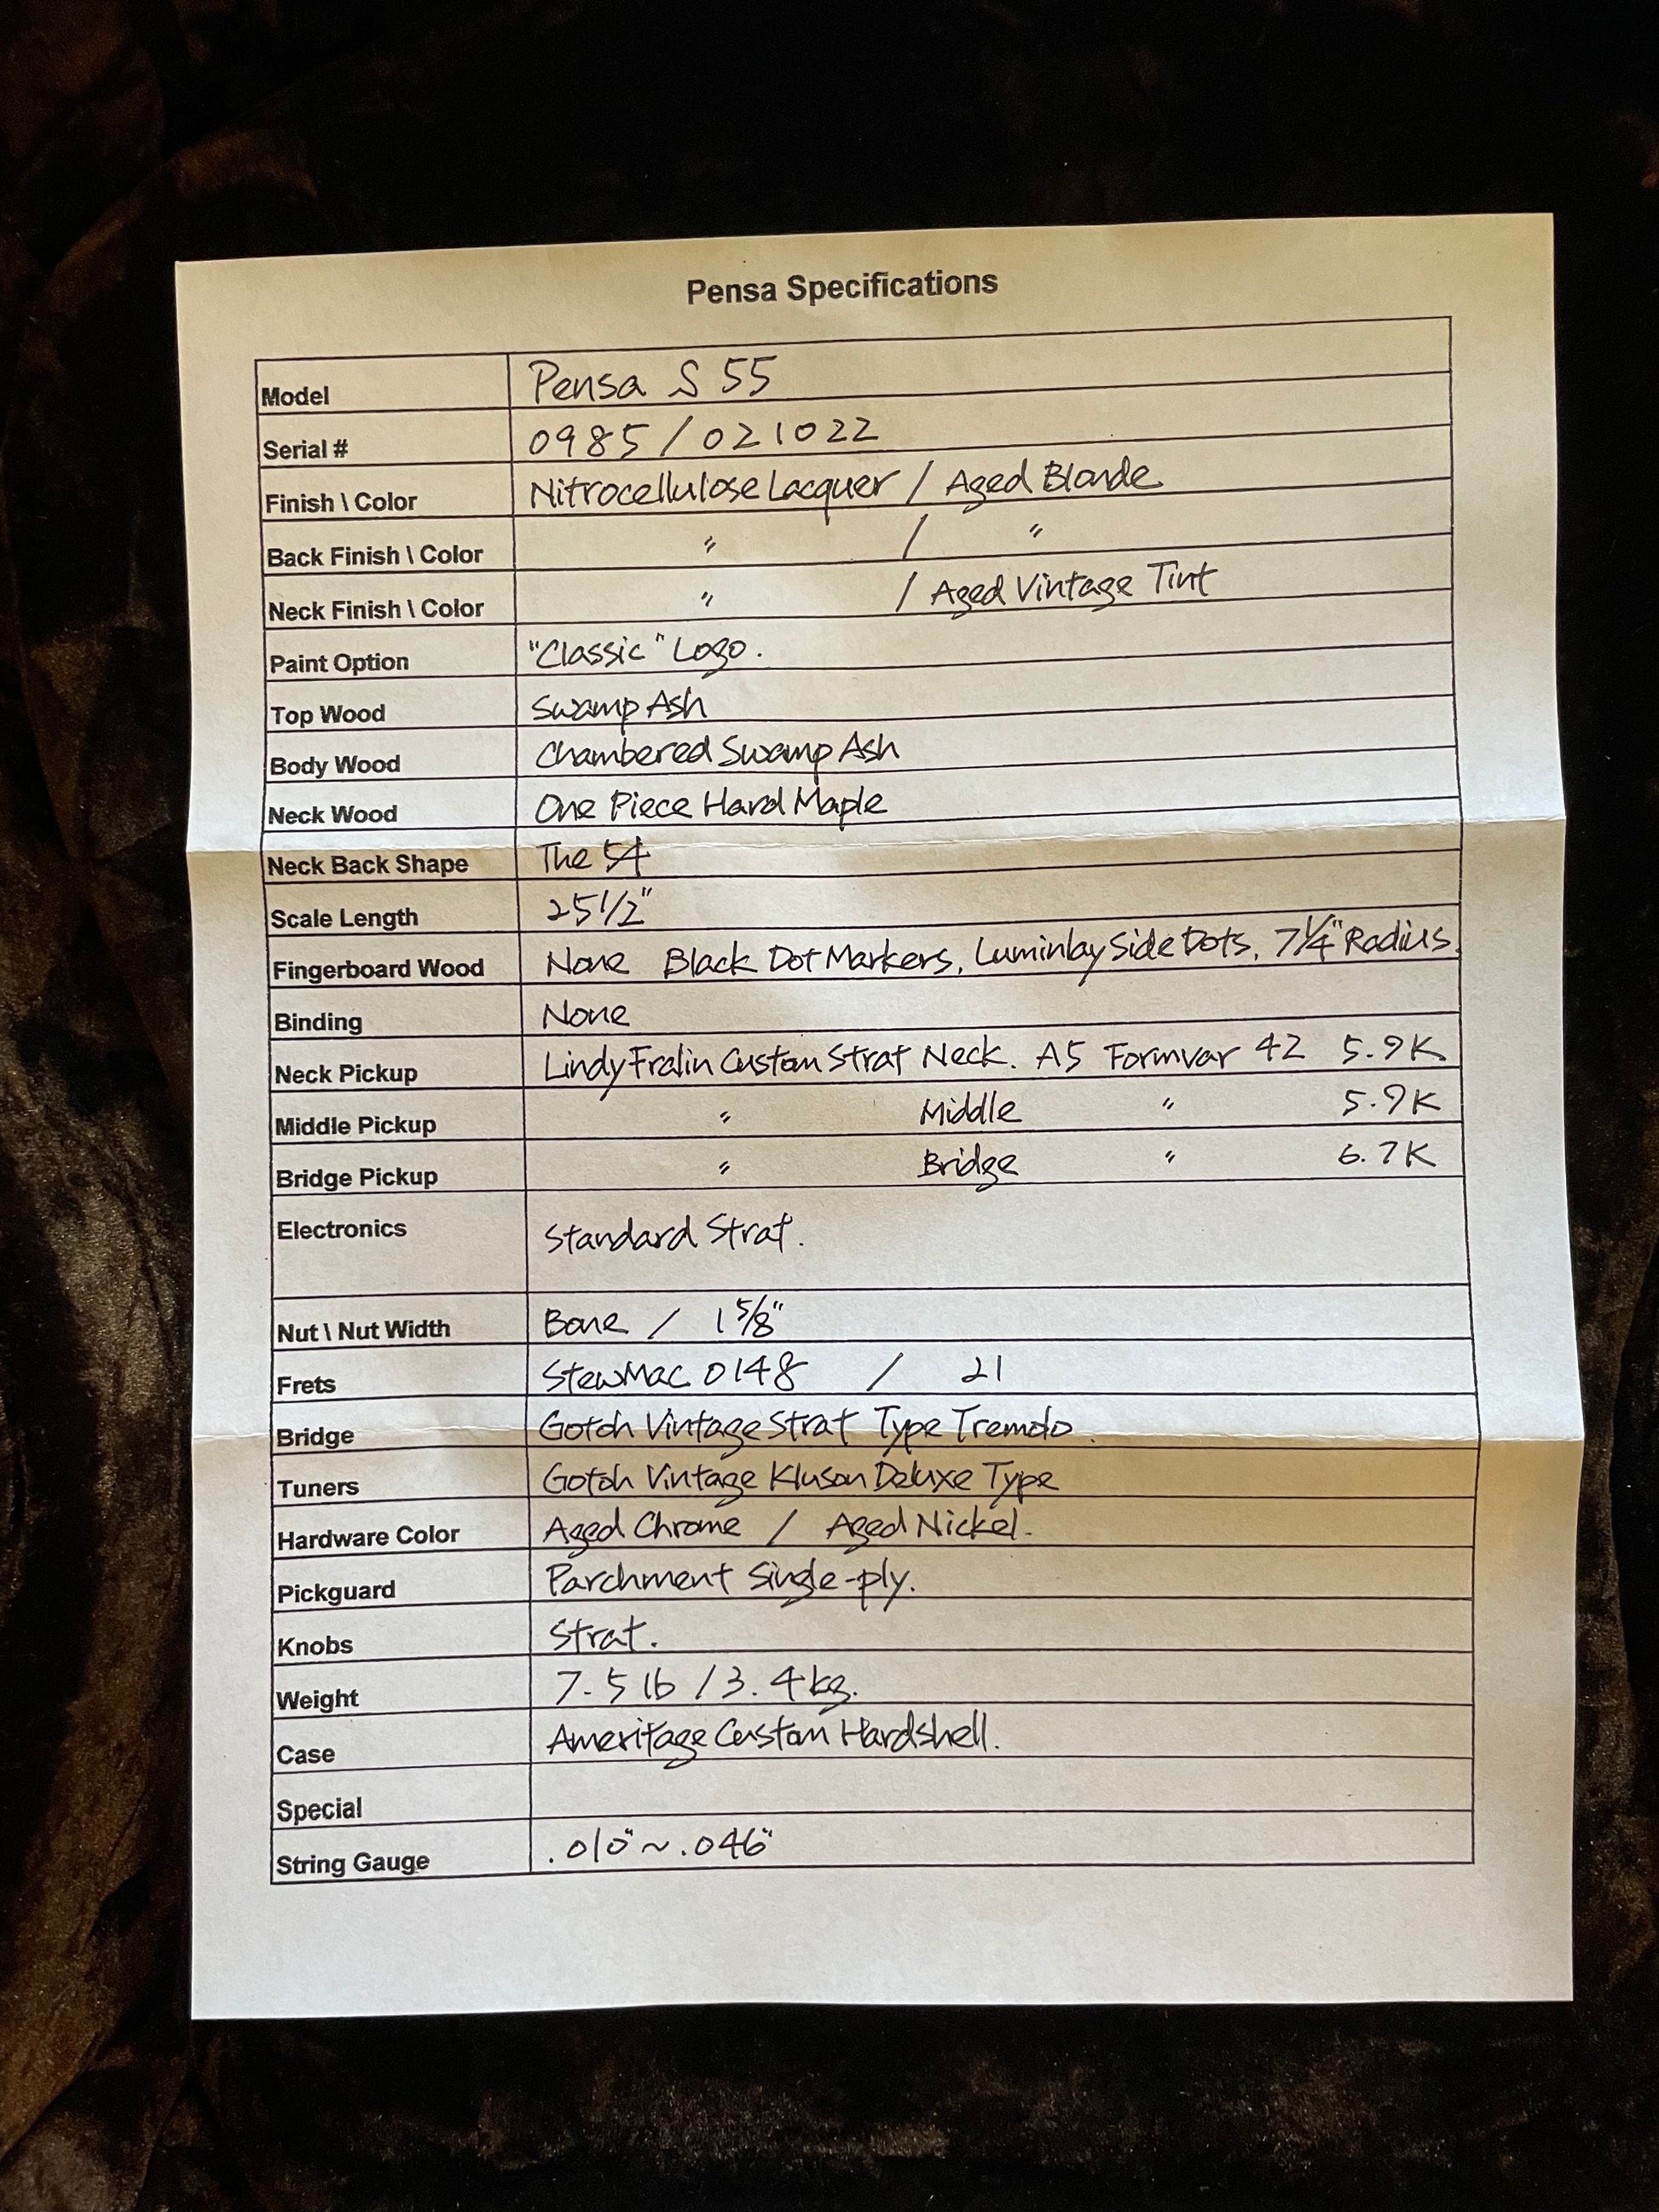 Pensa Specifications
Model Pensa S 55
Serial # 0985 / 021022
Finish \ Color Nitrocellulose Lacquer / Aged Blonde
Back Finish \ Color " / "
Neck Finish \ Color " / Aged Vintage Tint
Paint Option "Classic" Logo.
Top Wood Swamp Ash
Body Wood Chambered Swamp Ash
Neck Wood One Piece Hard Maple
Neck Back Shape The 54
Scale Length 25 1/2"
Fingerboard Wood None Black Dot Markers, Luminlay Side Dots, 7 1/4" Radius.
Binding None
Neck Pickup Lindy Fralin Custom Strat Neck. A5 Formvar 42 5.9K
Middle Pickup " Middle " 5.9K
Bridge Pickup " Bridge " 6.7K
Electronics Standard Strat.
Nut \ Nut Width Bone / 1 5/8"
Frets StewMac 0148 / 21
Bridge Gotoh Vintage Strat Type Tremolo.
Tuners Gotoh Vintage Kluson Deluxe Type
Hardware Color Aged Chrome / Aged Nickel.
Pickguard Parchment Single-ply.
Knobs Strat.
Weight 7.5 lb / 3.4 kg.
Case Ameritage Custom Hardshell.
Special
String Gauge .010" ~ .046"